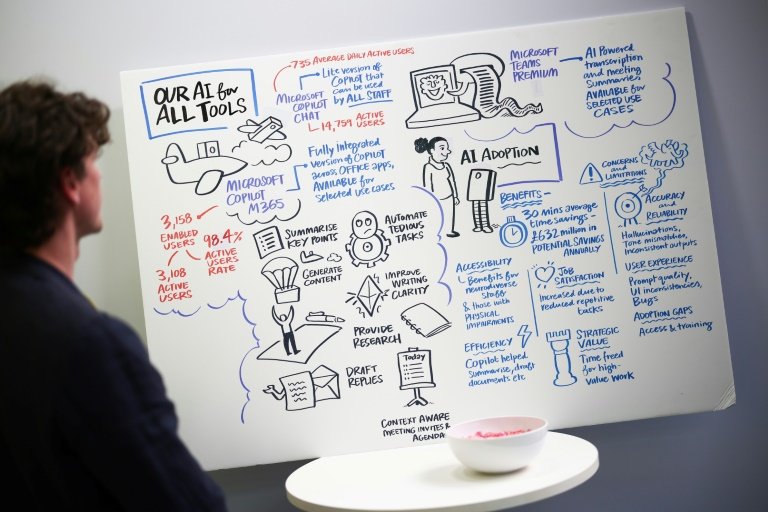 OUR AI for
ALL TOOLS
735 AVERAGE DAILY ACTIVE USERS
MICROSOFT
COPILOT
CHAT
Lite version of
COPILOT that
can be used
by ALL STAFF
14,759 ACTIVE
USERS
MICROSOFT
COPILOT
M365
Fully integrated
version of COPILOT
across OFFICE apps,
AVAILABLE for
selected use cases
3,158
ENABLED
USERS
98.4%
ACTIVE
USERS
RATE
3,108
ACTIVE
USERS
SUMMARISE
KEY POINTS
AUTOMATE
TEDIOUS
TASKS
GENERATE
CONTENT
IMPROVE
WRITING
CLARITY
PROVIDE
RESEARCH
DRAFT
REPLIES
Today
CONTEXT AWARE
MEETING INVITES &
AGENDA
MICROSOFT
TEAMS
PREMIUM
AI Powered
transcription
and meeting
summaries
AVAILABLE for
SELECTED USE
CASES
AI ADOPTION
BENEFITS
30 mins average
time savings -
£632 million in
POTENTIAL SAVINGS
ANNUALLY
ACCESSIBILITY
Benefits for
neurodiverse
staff
& those with
PHYSICAL
IMPAIRMENTS
JOB
SATISFACTION
Increased due to
reduced repetitive
tasks
EFFICIENCY
Copilot helped
summarise, draft
documents etc
STRATEGIC
VALUE
Time freed
for high-
value work
CONCERNS
and
LIMITATIONS
ACCURACY
and
RELIABILITY
Hallucinations,
Tone mismatches,
inconsistent outputs
USER EXPERIENCE
Prompt quality,
UI inconsistencies,
Bugs
ADOPTION GAPS
Access & training